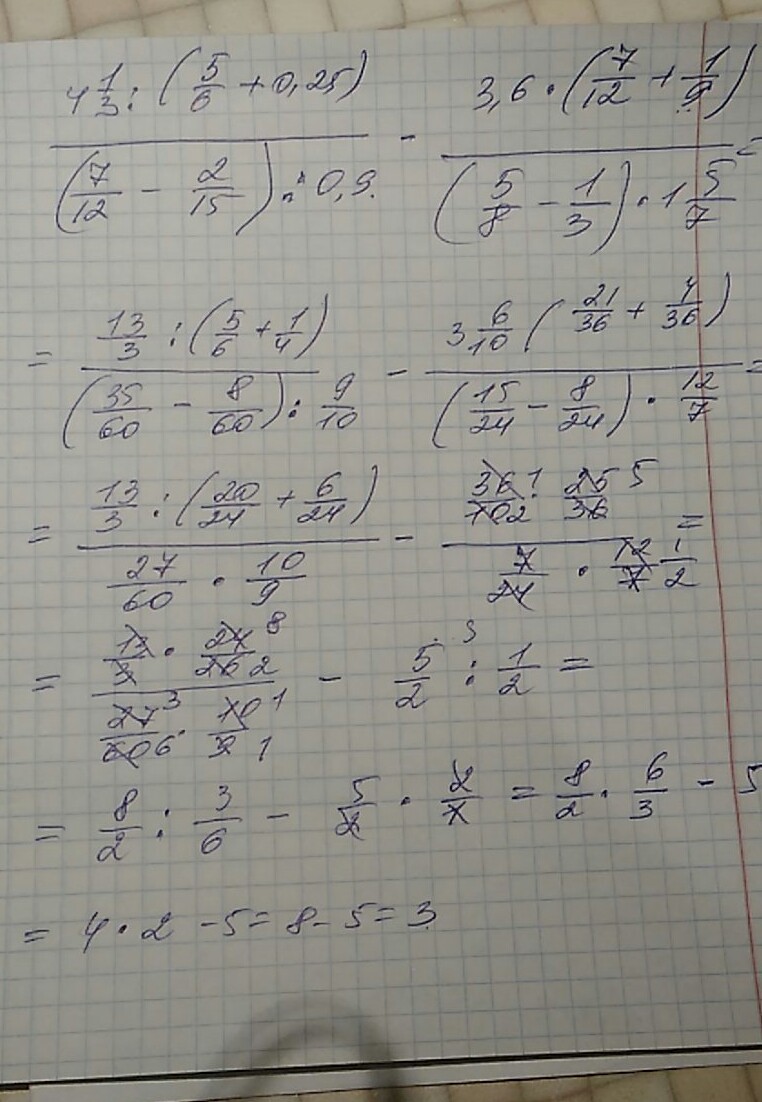 4 1/3 : (5/6 + 0,25) / (7/12 − 2/15) : 0,9 − 3,6 · (7/12 + 1/9) / (5/8 − 1/3) · 1 5/7 =
= 13/3 : (5/6 + 1/4) / (35/60 − 8/60) : 9/10 − 3 6/10 (21/36 + 4/36) / (15/24 − 8/24) · 12/7 =
= 13/3 : (20/24 + 6/24) / 27/60 · 10/9 − 36 1/10 2 · 25 5/36 / 7/24 · 12 1/7 2 =
= 13/3 · 24 8/26 2 / 27 3/60 6 · 10 1/9 1 − 5/2 : 1/2 =
= 8/2 : 3/6 − 5/2 · 2/1 = 8/2 · 6/3 − 5
= 4 · 2 − 5 = 8 − 5 = 3